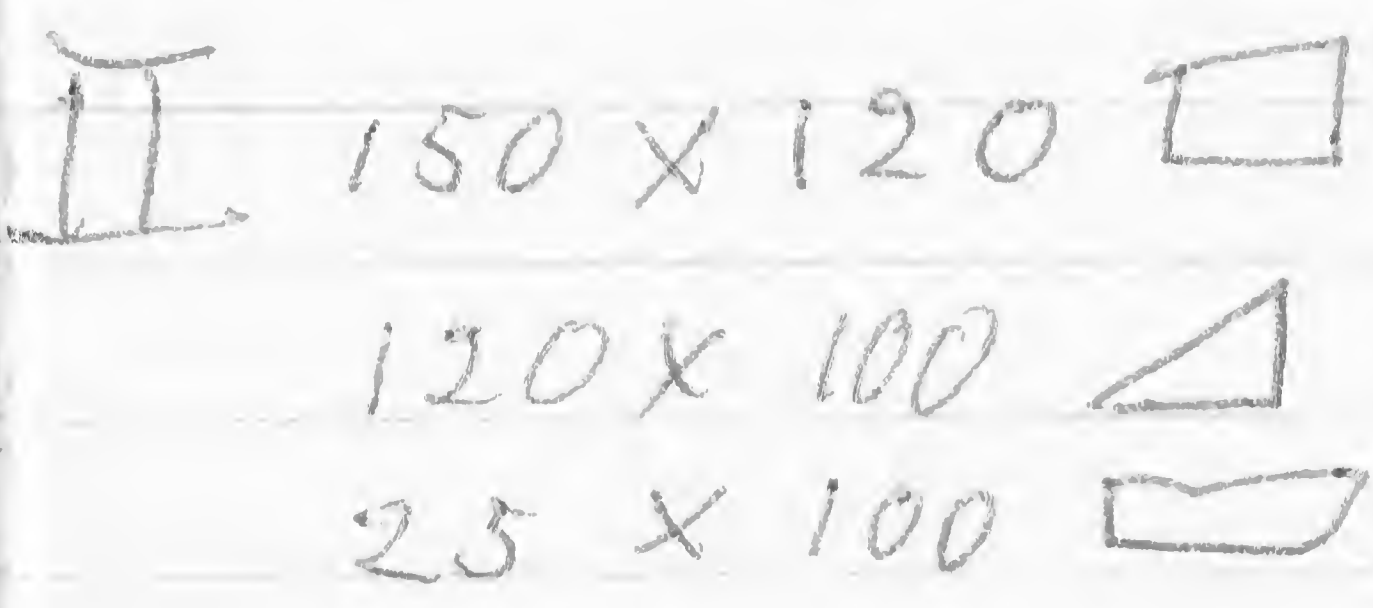 II 150 x 120
120 x 100
25 x 100